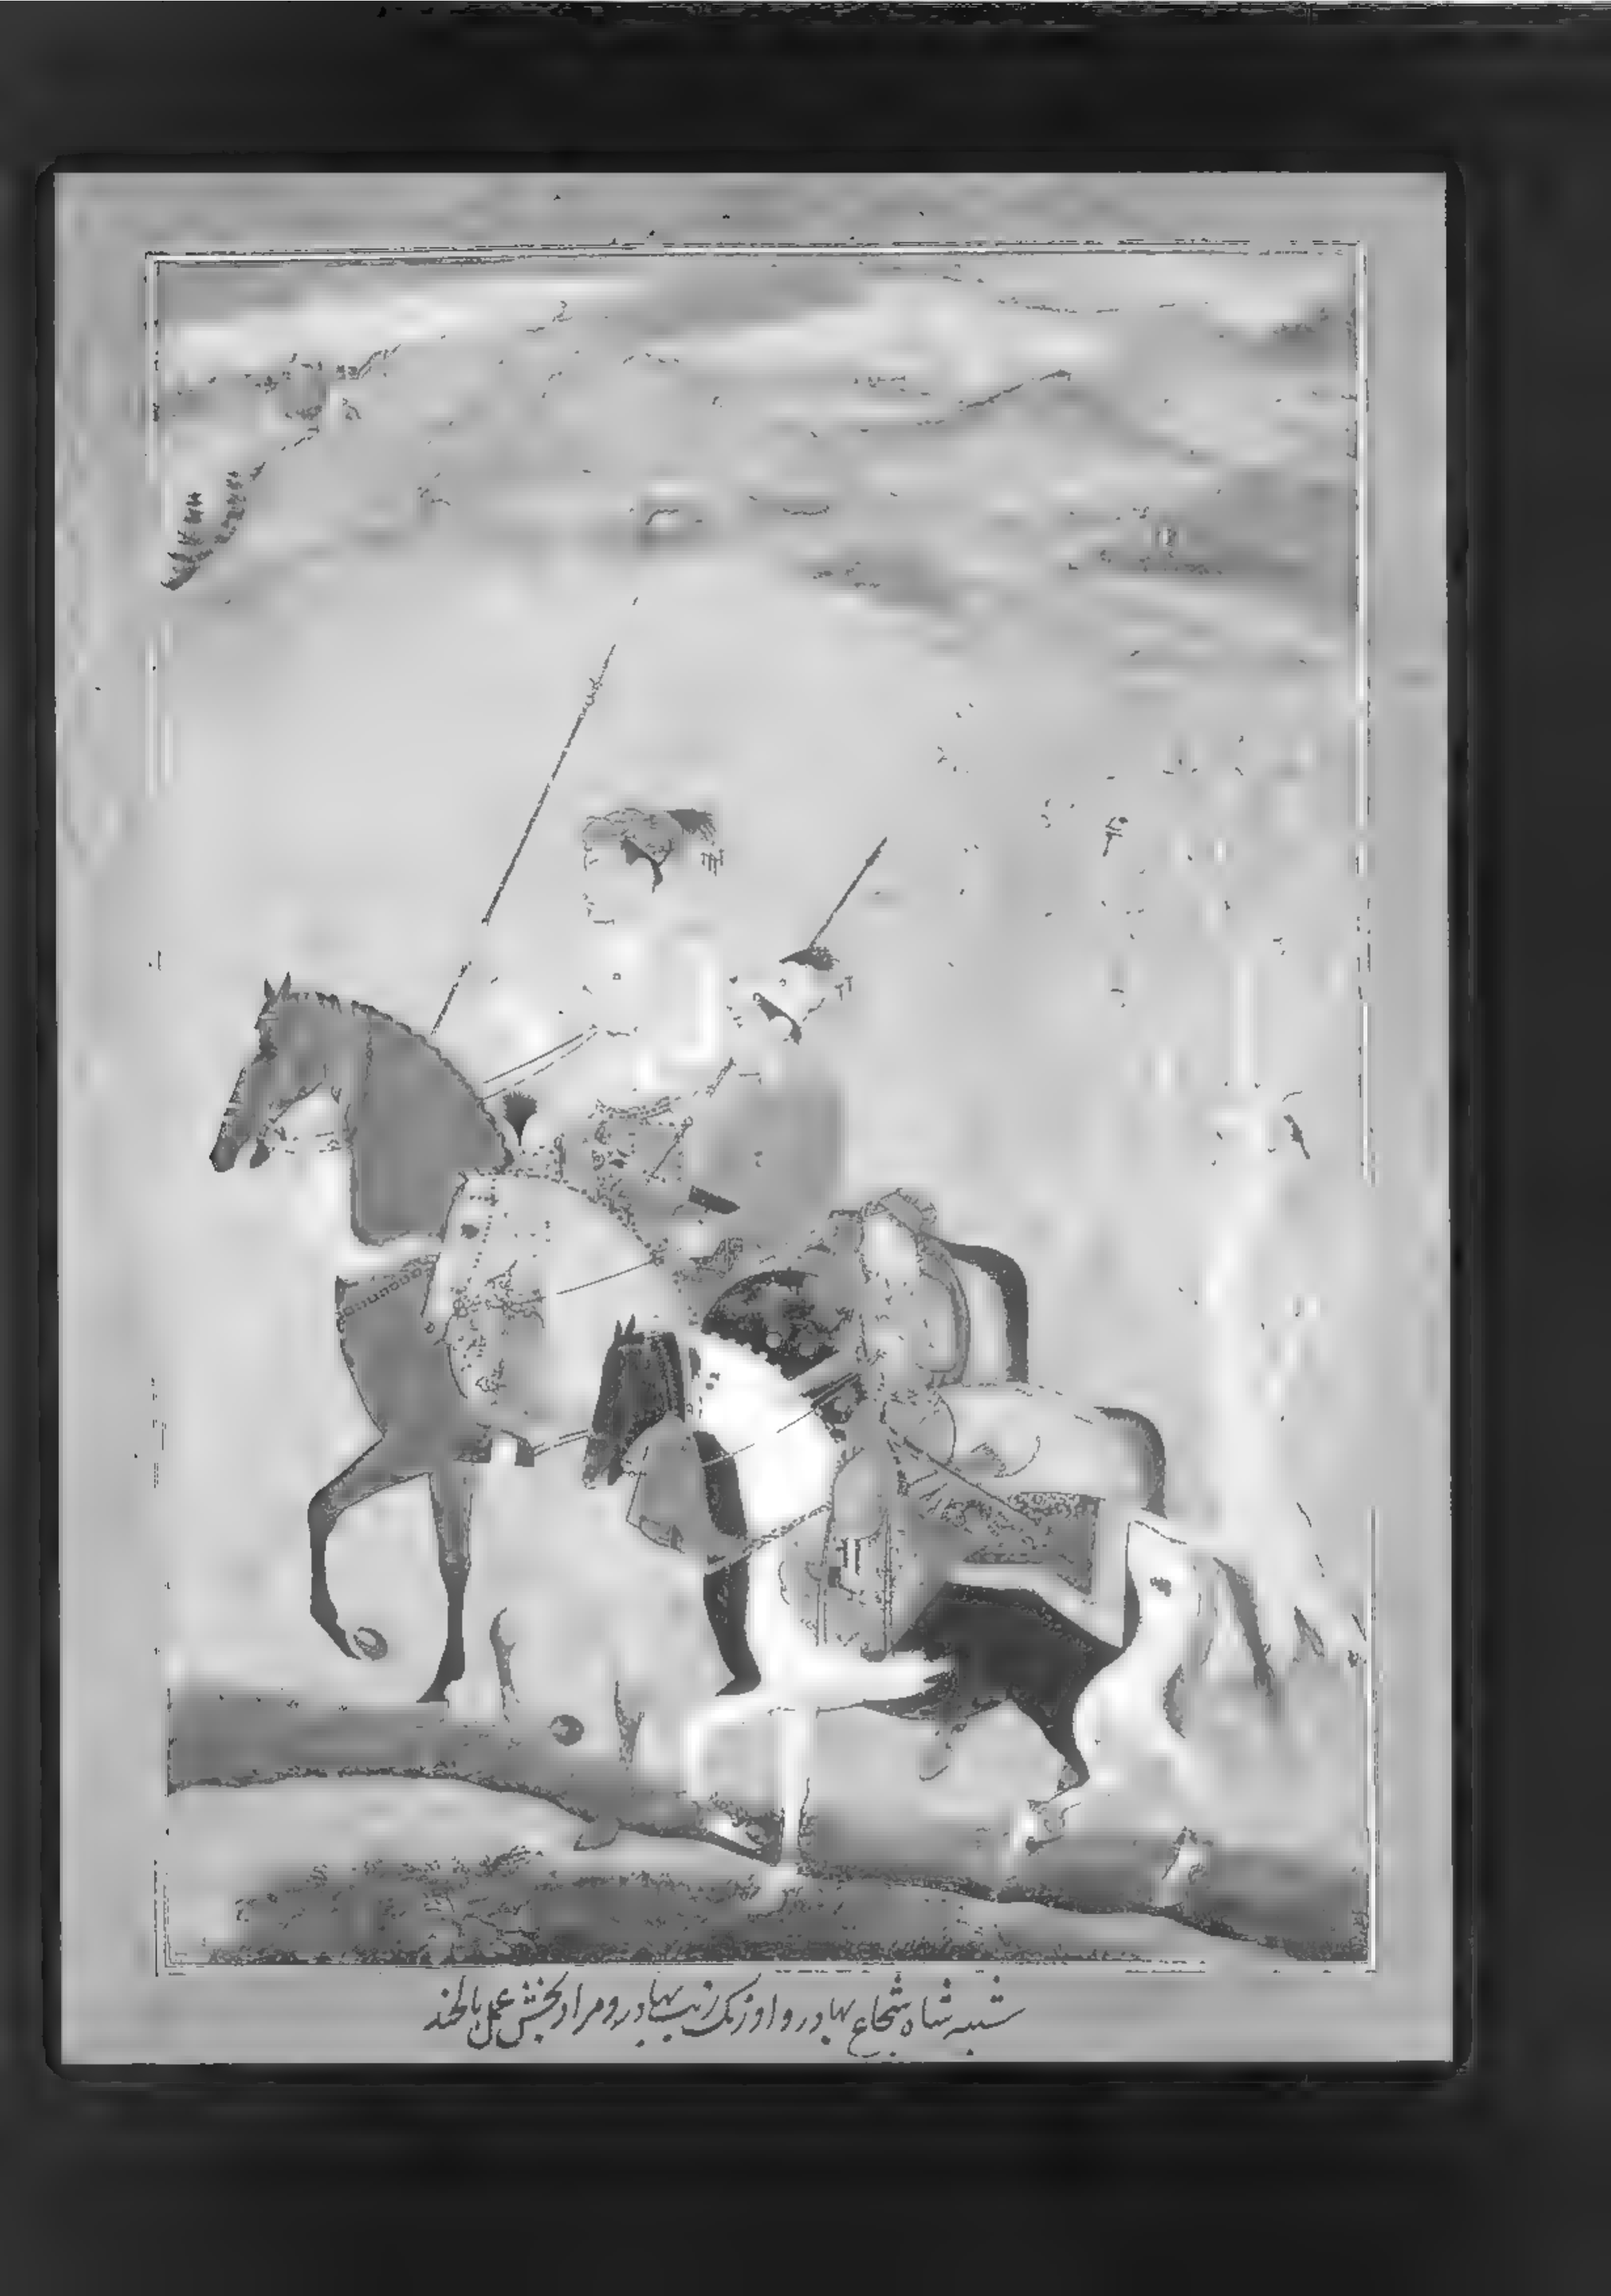 شبیه شاه شجاع بهادر و اورنک زیب بهادر و مراد بخش عمل بالچند